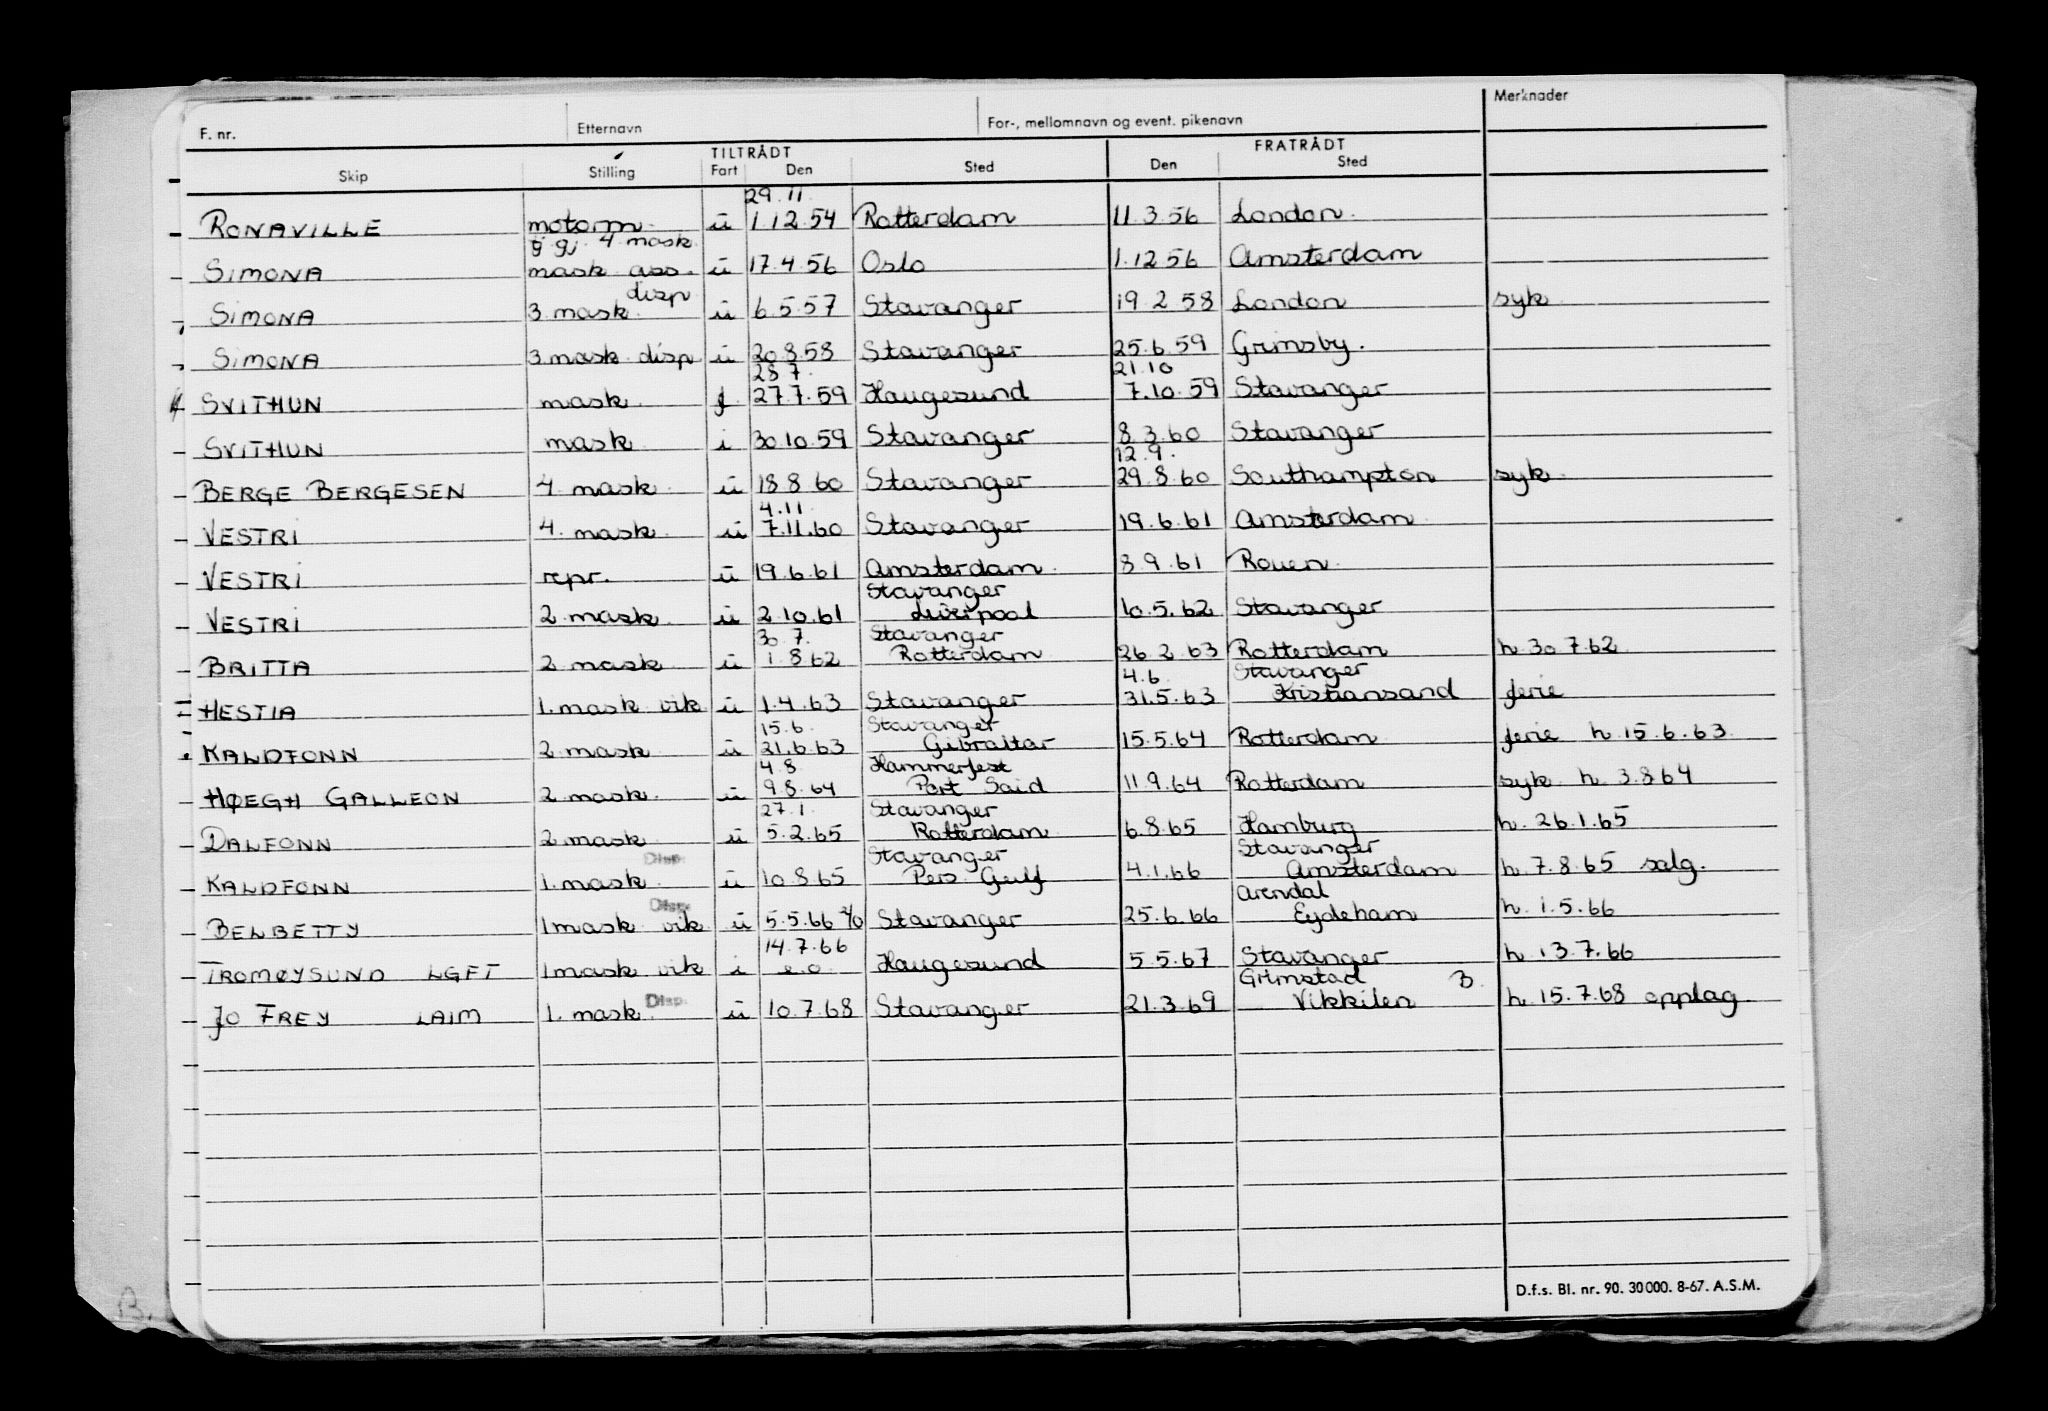 F. nr. Etternavn For-, mellomnavn og event. pikenavn Merknader
TILTRÅDT FRATRÅDT
Skip Stilling Fart Den Sted Den Sted
29.11
RONAVILLE motorm. ü 1.12.54 Rotterdam 11.3.56 London.
g. gj. 4 mask
SIMONA mask ass. ü 17.4.56 Oslo 1.12.56 Amsterdam
disp
SIMONA 3. mask. ü 6.5.57 Stavanger 19.2.58 London syk
SIMONA 3. mask. disp ü 20.8.58 Stavanger 25.6.59 Grimsby.
28.7. 21.10
SVITHUN mask. f. 27.7.59 Haugesund 7.10.59 Stavanger
SVITHUN mask. i 30.10.59 Stavanger 8.3.60 Stavanger
12.9.
BERGE BERGESEN 4. mask. ü 18.8.60 Stavanger 29.8.60 Southampton syk.
4.11
VESTRI 4. mask. ü 7.11.60 Stavanger 19.6.61 Amsterdam.
VESTRI repr. ü 19.6.61 Amsterdam. 8.9.61 Rouen.
Stavanger
VESTRI 2. mask. ü 2.10.61 Liverpool 10.5.62 Stavanger
30.7. Stavanger
BRITTA 2. mask. ü 1.8.62 Rotterdam 26.2.63 Rotterdam h. 30.7.62
4.6. Stavanger
HESTIA 1. mask vik ü 1.4.63 Stavanger 31.5.63 Kristiansand ferie
15.6. Stavanger
KALDFONN 2. mask. ü 21.6.63 Gibraltar 15.5.64 Rotterdam ferie h. 15.6.63
4.8. Hammerfest
HØEGH GALLEON 2. mask. ü 9.8.64 Port Said 11.9.64 Rotterdam syk. h. 3.8.64
27.1. Stavanger
DALFONN 2. mask ü 5.2.65 Rotterdam 6.8.65 Hamburg h. 26.1.65
Disp. Stavanger Stavanger
KALDFONN 1. mask. ü 10.8.65 Pers. Gulf 4.1.66 Amsterdam h. 7.8.65 salg.
Disp. Arendal
BELBETTY 1 mask vik ü 5.5.66 Stavanger 25.6.66 Eydeham h. 1.5.66
14.7.66
TROMØYSUND LGFT 1 mask vik i e.o. Haugesund 5.5.67 Stavanger h. 13.7.66
Disp. Grimstad B.
JO FREY LAIM 1. mask. ü 10.7.68 Stavanger 21.3.69 Vikkilen h. 15.7.68 opplag
D.f.s. Bl. nr. 90. 30000. 8-67. A.S.M.
B.